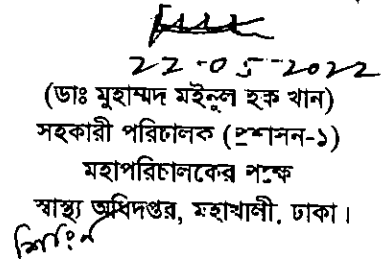 22-05-2022
(ডাঃ মুহাম্মদ মইনুল হক খান)
সহকারী পরিচালক (প্রশাসন-১)
মহাপরিচালকের পক্ষে
স্বাস্থ্য অধিদপ্তর, মহাখালী, ঢাকা।